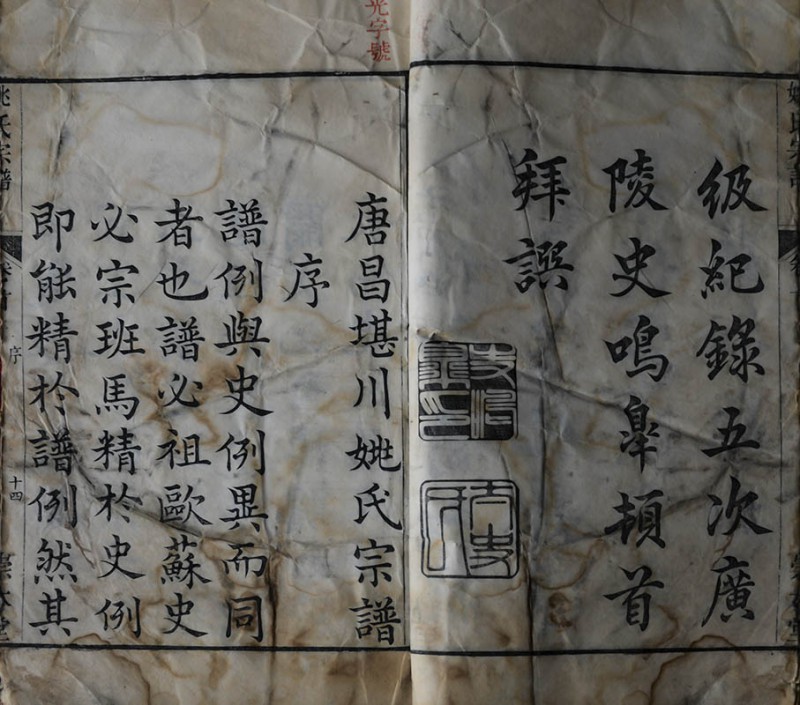 級紀錄五次廣
陵史鳴皋頓首
拜譔
唐昌堪川姚氏宗譜
序
譜例與史例異而同
者也譜必祖歐蘇史
必宗班馬精於史例
即能精於譜例然其
光字號
姚氏宗譜
序
十四